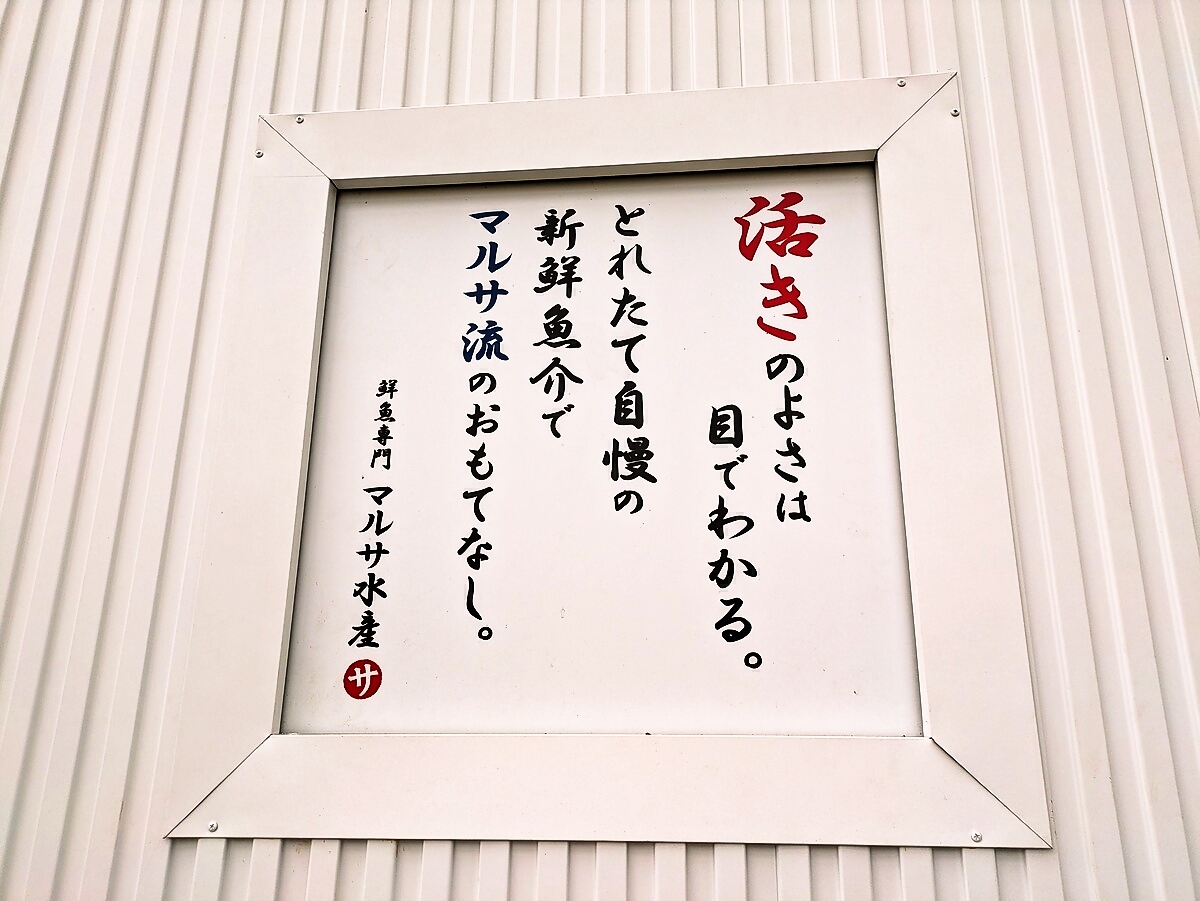 活きのよさは
目でわかる。
とれたて自慢の
新鮮魚介で
マルサ流のおもてなし。
鮮魚専門 マルサ水産 サ